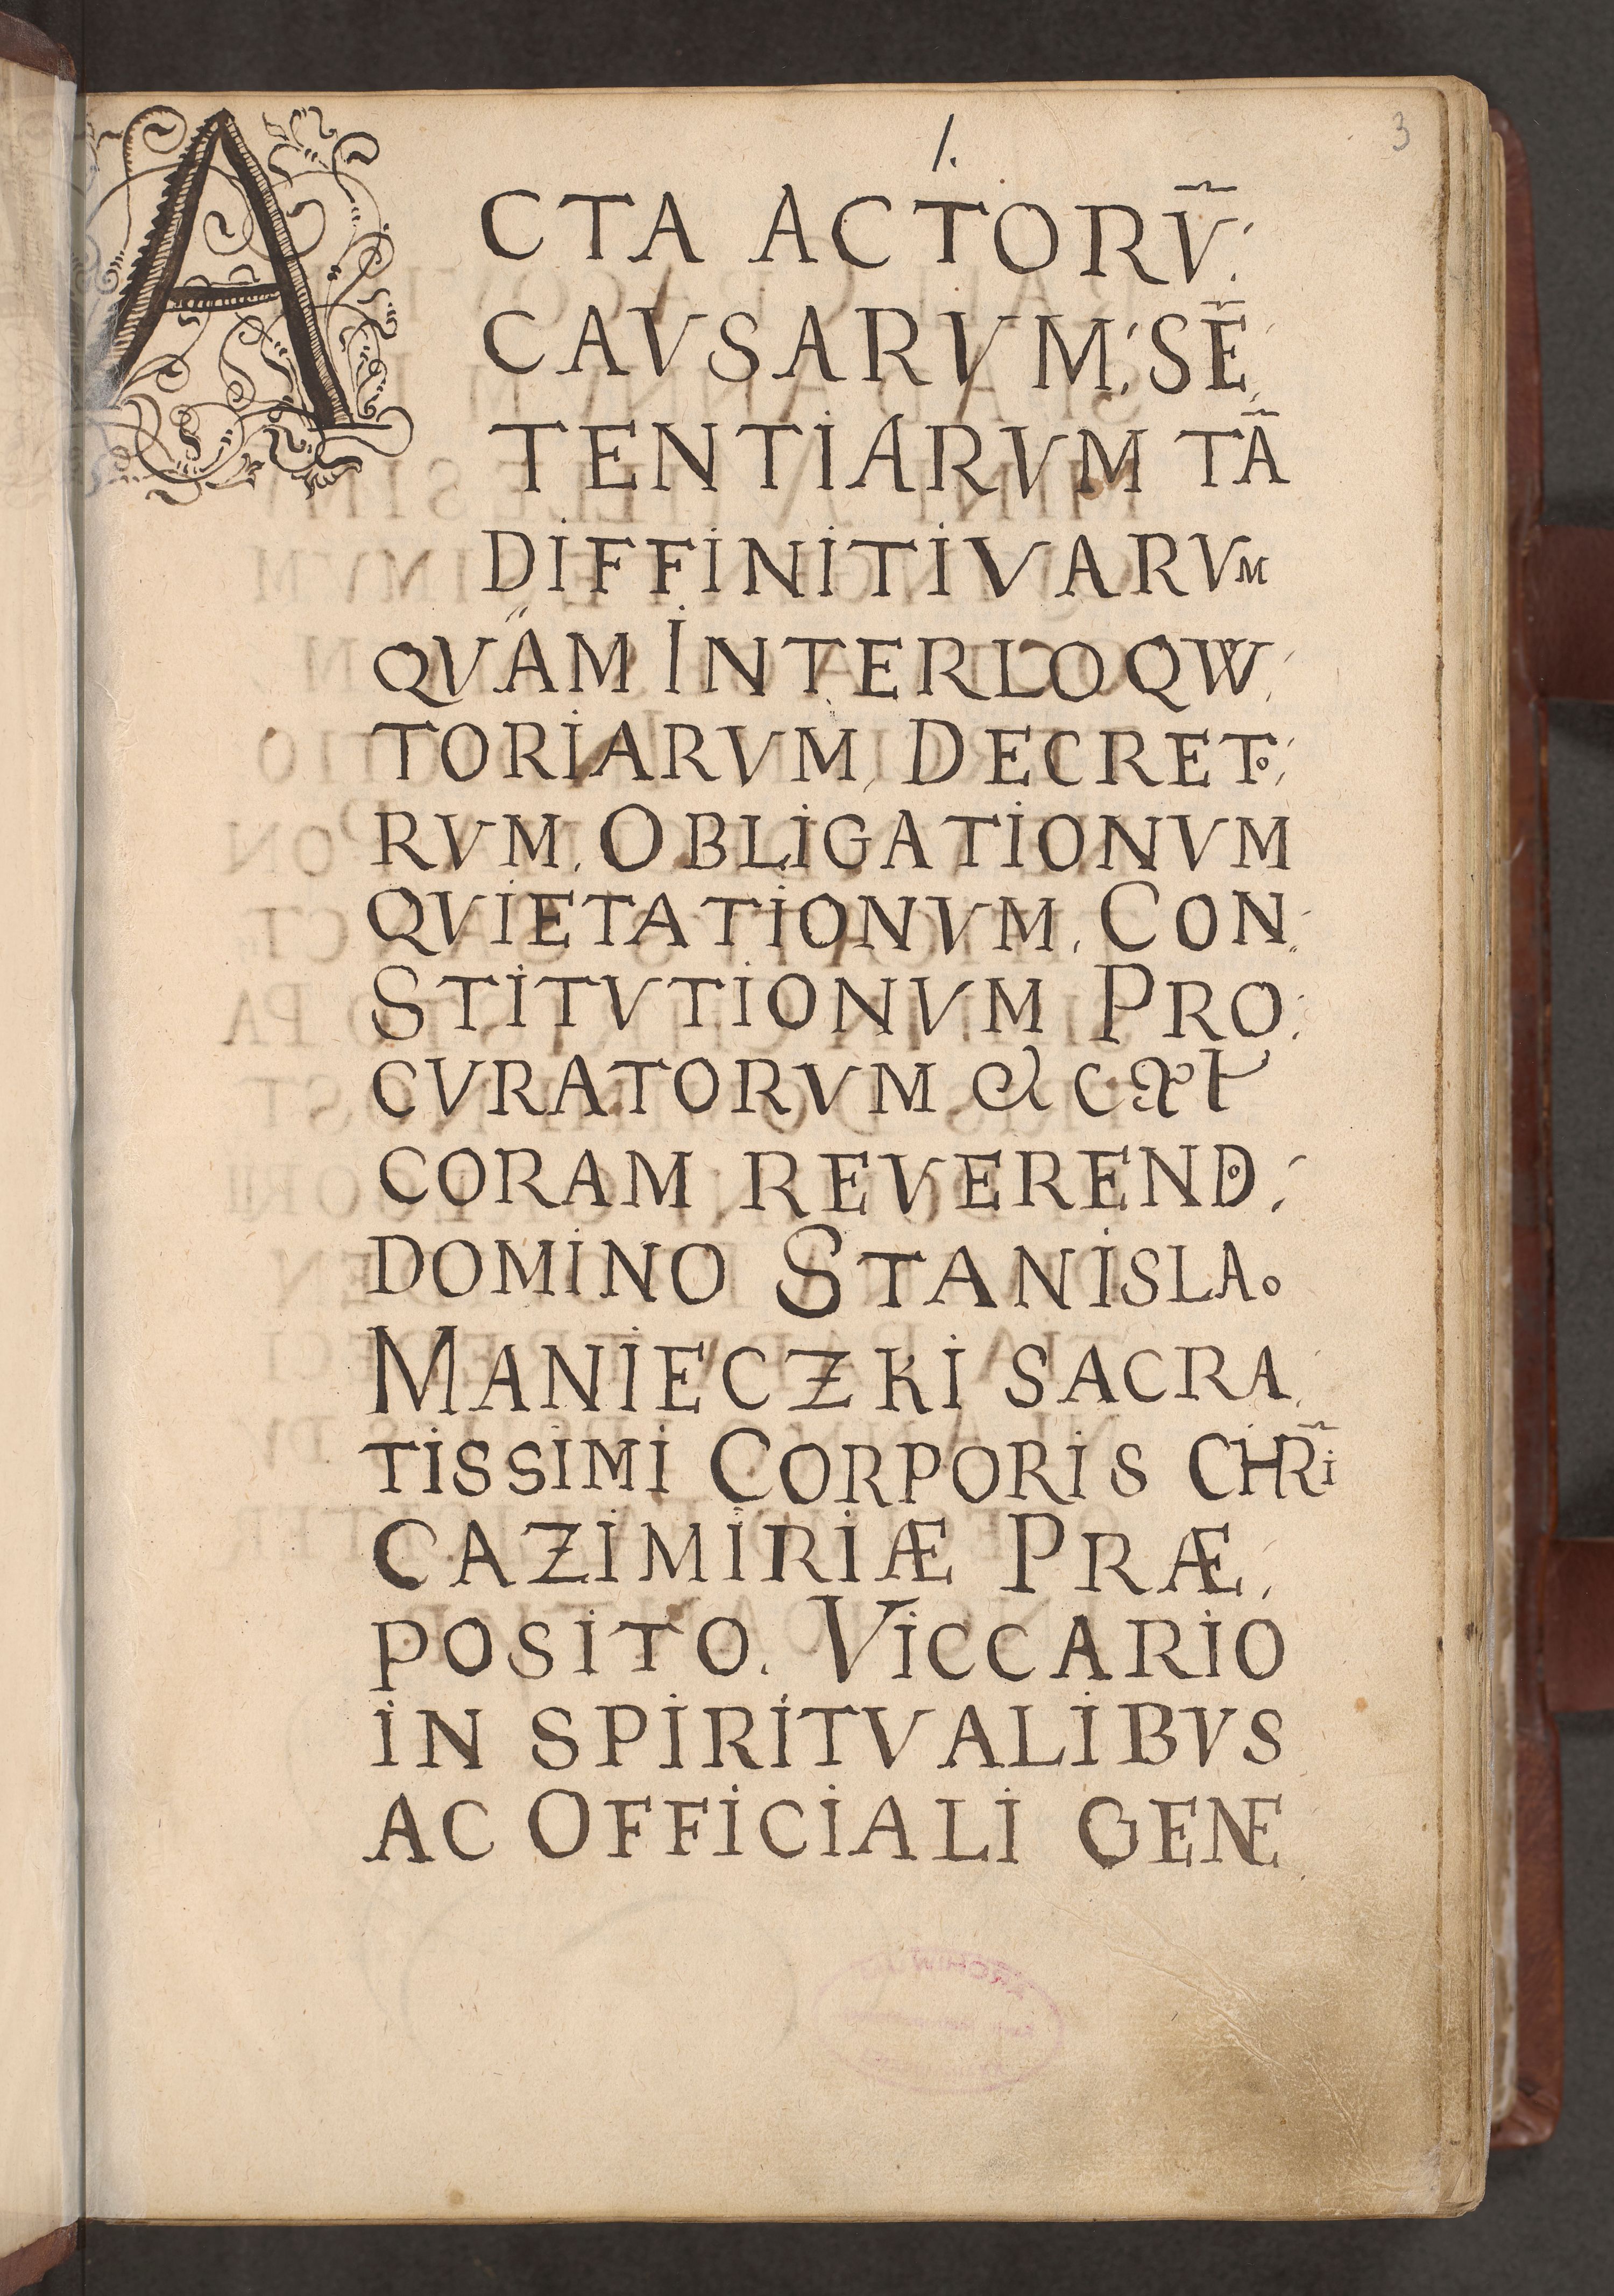 1.
3
ACTA ACTORṼ:
CAVSARVM: SẼ,
TENTIARVM TÃ
DIFFINITIVARVM
QVAM INTERLOQW,
TORIARVM, DECRETo,
RVM, OBLIGATIONVM
QVIETATIONVM, CON,
STITVTIONVM PRO:
CVRATORVM &c
CORAM REVERENDo,
DOMINO STANISLAo
MANIECZKI SACRA,
TISSIMI CORPORIS CHR̃I
CAZIMIRIÆ PRÆ,
POSITO, VICCARIO
IN SPIRITVALIBVS
AC OFFICIALI GENE